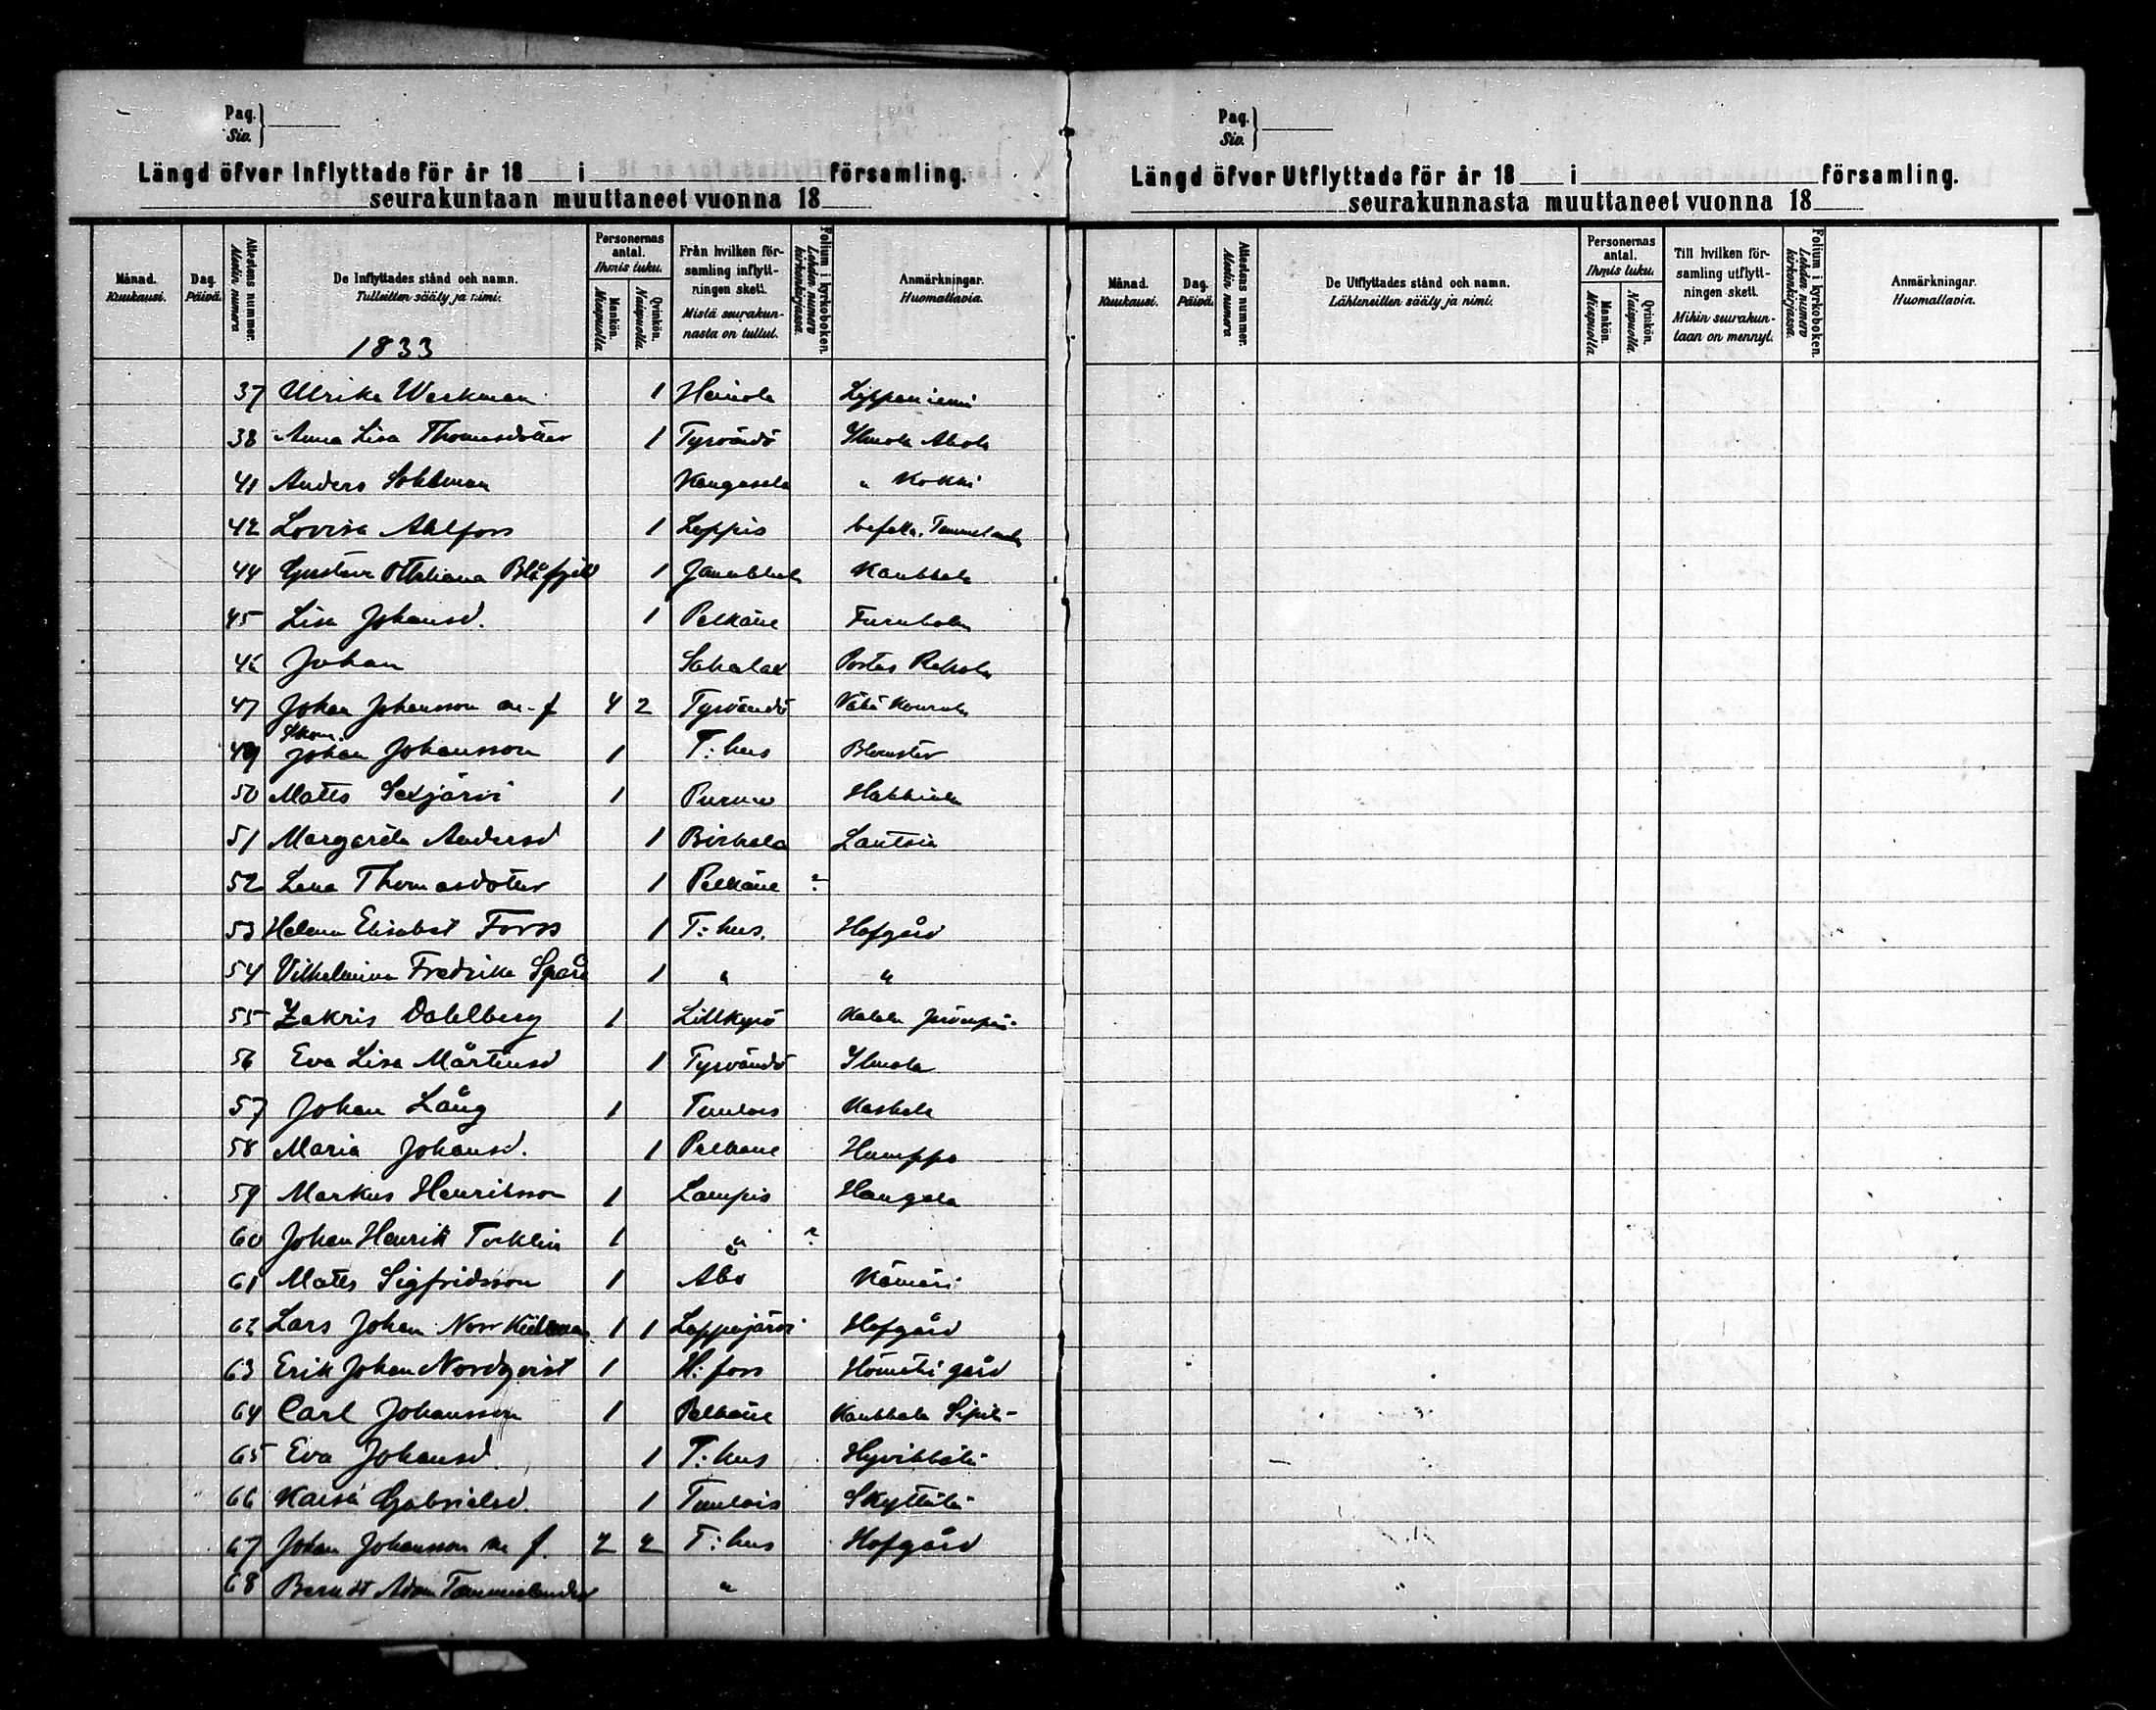 Pag.
Siv.
Längd öfver Inflyttade för år 18 i församling.
seurakuntaan muuttaneet vuonna 18
Månad. Kuukausi.
Dag. Päivä.
Attestens nummer. Altestin numero
De Inflyttades stånd och namn.
Tulleitten sääty ja nimi.
Personernas antal.
Ihmis luku.
Mankön. Miespuolia
Qvinkön. Naispuolia.
Från hvilken församling inflyttningen skett.
Mistä seurakunnasta on tullut.
Folium i kyrkoboken.
Lehden numero kirkonkirjassa.
Anmärkningar.
Huomattavia.
1833
37 Ulrika Werkman 1 Heinola Leppäniemi
38 Anna Lisa Thomasdotter 1 Tyrväntö Ilmola Ahola
41 Anders Sohlman Kangasala " Kokki
42 Lovisa Ahlfors 1 Loppis
44 Gustava Ottiliana Blåfjeld 1 Janakkala Kankkala
45 Lisa Johansd. 1 Pelkäne Furuholm
46 Johan Sahalax Portas Rekola
47 Johan Johansson m. f 4 2 Tyrväntö
Skom.
49 Johan Johansson 1 T:hus Blomster
50 Matts Saxjärvi 1 Purmo Hakkiala
51 Margareta Andersd 1 Birkala Lautsia
52 Lena Thomasdotter 1 Pelkäne ?
53 Helena Elisabet Forss 1 T:hus. Hofgård
54 Vilhelmina Fredrika Spåre 1 " "
55 Zakris Dahlberg 1 Lillkyrö
56 Eva Lisa Mårtensd 1 Tyrväntö Ilmola
57 Johan Lång 1 Tuulois Kaskala
58 Maria Johansd. 1 Pelkäne Humppo
59 Markus Henriksson 1 Lampis Haugala
60 Johan Henrik Tocklin 1 " ?
61 Matts Sigfridsson 1 Åbo Kämäri
62 Lars Johan Norr 1 1 Lappajärvi Hofgård
63 Erik Johan Nordqvist 1 H:fors gård
64 Carl Johansson 1 Pelkäne Kankkala
65 Eva Johansd. 1 T:hus Hyvikkälä
66 Kaisa Gabrielsd. 1 Tuulois Skyttälä
67 Johan Johansson m f. 2 2 T:hus Hofgård
68 Berndt Adam Tammelander "
Pag.
Siv.
Längd öfver Utflyttade för år 18 i församling.
seurakunnasta muuttaneet vuonna 18
Månad. Kuukausi.
Dag. Päivä.
Attestens nummer. Altestin numero
De Utflyttades stånd och namn.
Lähteneitten sääty ja nimi.
Personernas antal.
Ihmis luku.
Mankön. Miespuolia
Qvinkön. Naispuolia.
Till hvilken församling utflyttningen skett.
Mihin seurakuntaan on mennyt.
Folium i kyrkoboken.
Lehden numero kirkonkirjassa.
Anmärkningar.
Huomattavia.